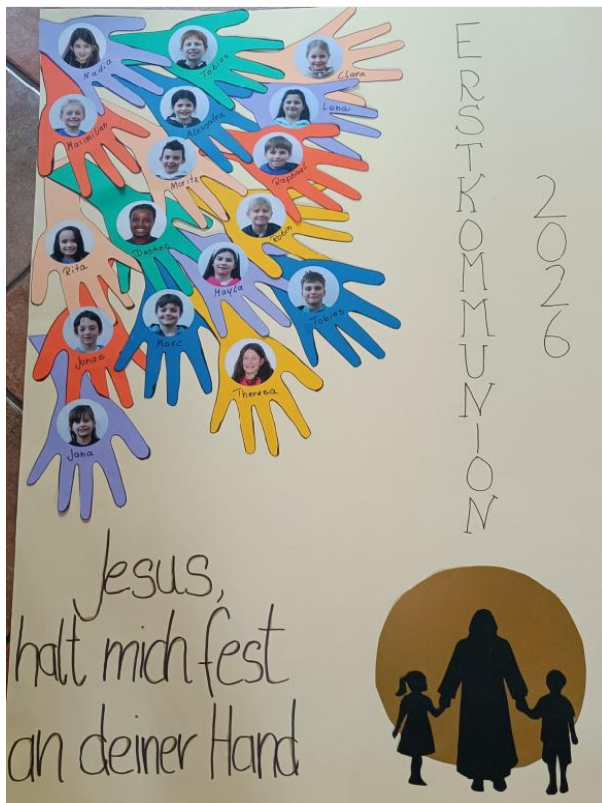 Nadia
Tobias
Clara
Maximilian
Alexandra
Lena
Moritz
Raphael
Rita
Robin
Mayla
Tobias
Jonas
Marc
Theresa
Jana
ERSTKOMMUNION
2026
Jesus,
halt mich fest
an deiner Hand